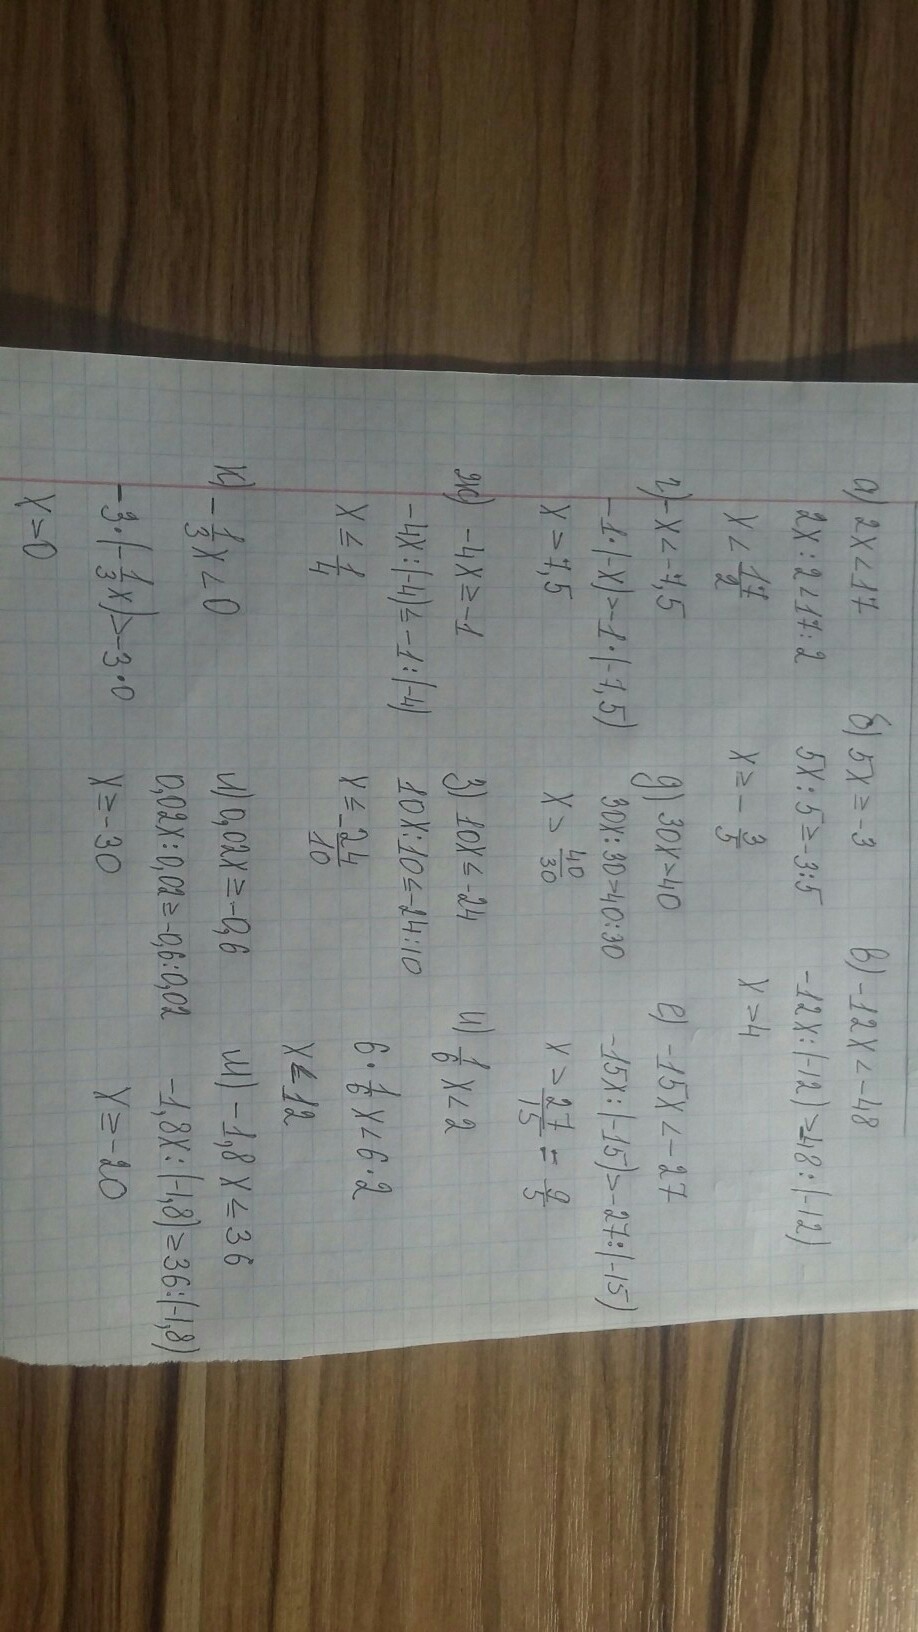 а) 2x < 17
2x : 2 < 17 : 2
x < 17/2
б) 5x ≥ -3
5x : 5 ≥ -3 : 5
x ≥ - 3/5
в) -12x < -48
-12x : (-12) > -48 : (-12)
x > 4
г) -x < -7,5
-1 · (-x) > -1 · (-7,5)
x > 7,5
д) 30x > 40
30x : 30 > 40 : 30
x > 40/30
е) -15x < -27
-15x : (-15) > -27 : (-15)
x > 27/15 = 9/5
ж) -4x ≥ -1
-4x : (-4) ≤ -1 : (-4)
x ≤ 1/4
з) 10x ≤ -24
10x : 10 ≤ -24 : 10
x ≤ -24/10
и) 1/6 x < 2
6 · 1/6 x < 6 · 2
x < 12
к) - 1/3 x < 0
-3 · (- 1/3 x) > -3 · 0
x > 0
л) 0,02x ≥ -0,6
0,02x : 0,02 ≥ -0,6 : 0,02
x ≥ -30
м) -1,8x ≤ 36
-1,8x : (-1,8) ≥ 36 : (-1,8)
x ≥ -20